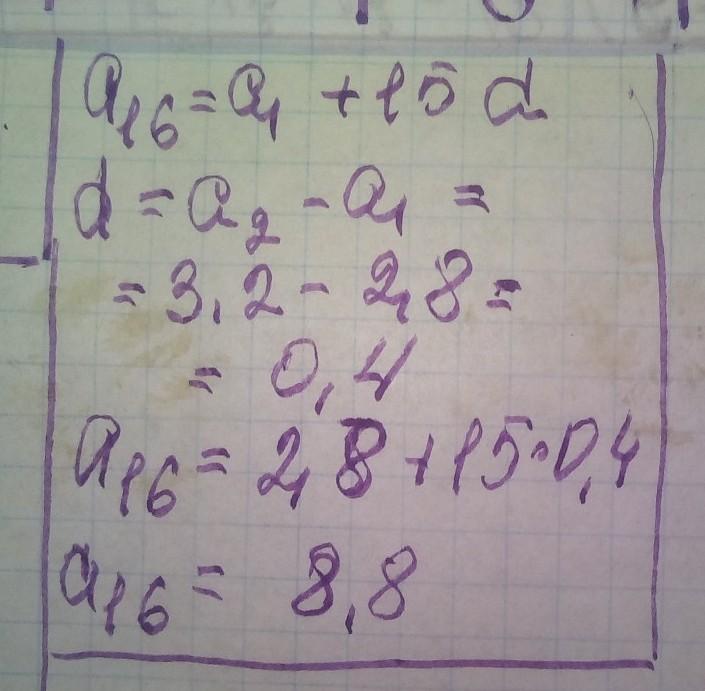 a₁₆ = a₁ + 15 d
d = a₂ - a₁ =
= 3,2 - 2,8 =
= 0,4
a₁₆ = 2,8 + 15·0,4
a₁₆ = 8,8